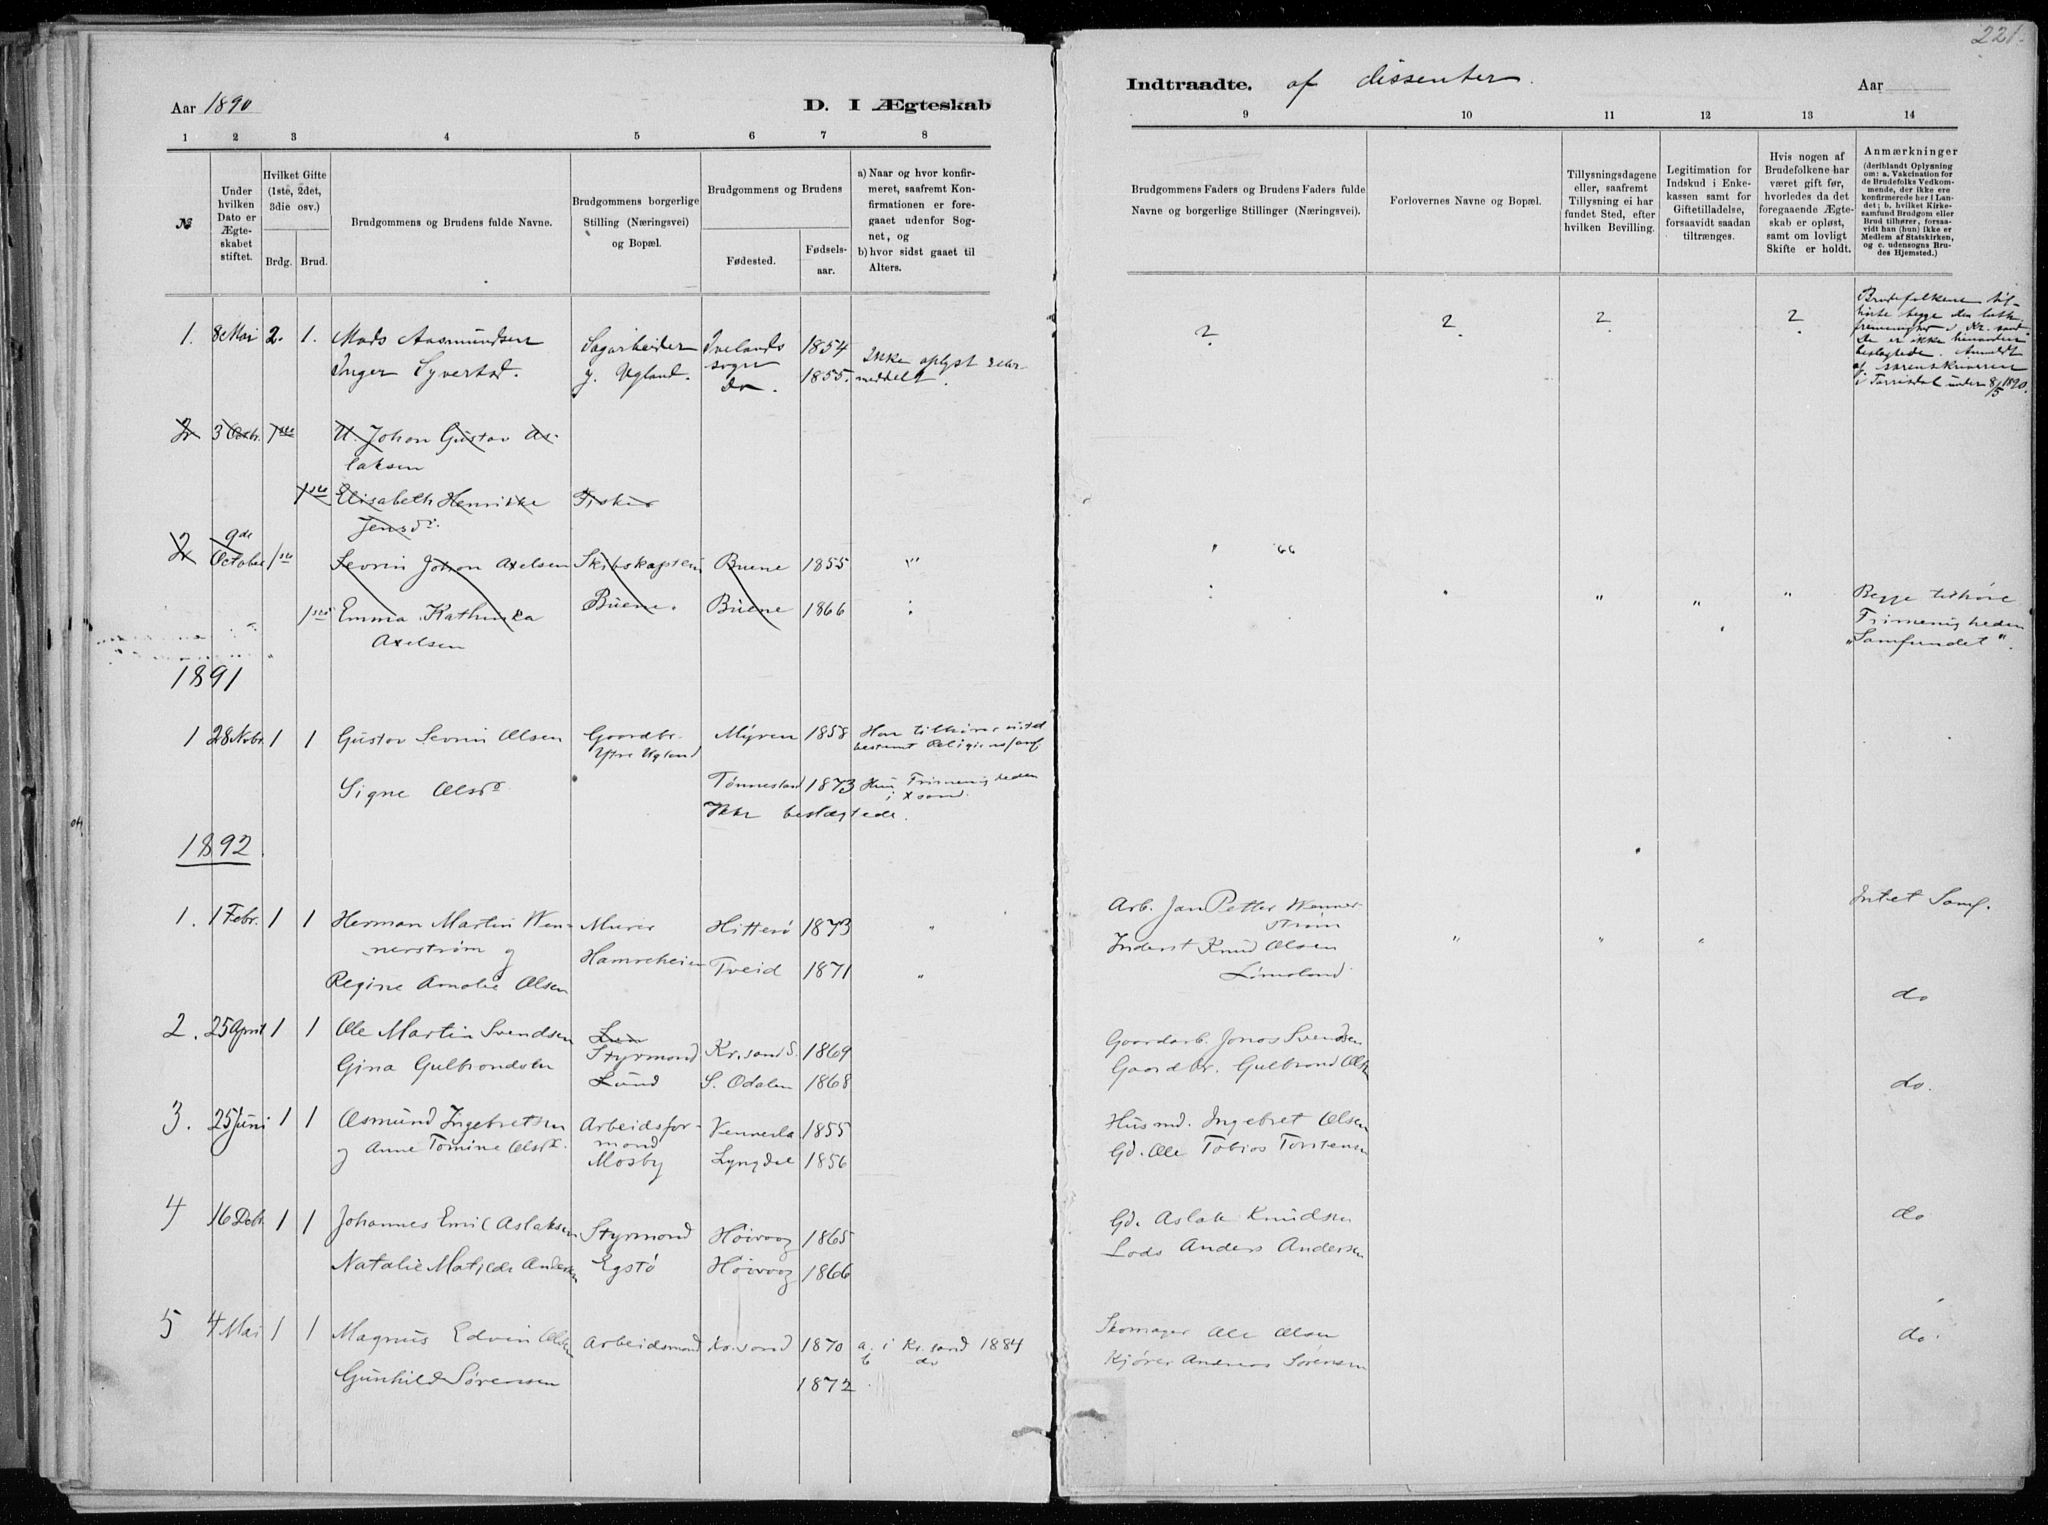 221.
Aar 1890
D. I Ægteskab
Indtraadte. af dissenter.
Aar
1 2 3 4 5 6 7 8
9 10 11 12 13 14
№
Under hvilken Dato er Ægteskabet stiftet.
Hvilket Gifte (1ste, 2det, 3die osv.)
Brdg. Brud.
Brudgommens og Brudens fulde Navne.
Brudgommens borgerlige Stilling (Næringsvei) og Bopæl.
Brudgommens og Brudens
Fødested.
Fødsels-aar.
a) Naar og hvor konfirmeret, saafremt Konfirmationen er foregaaet udenfor Sognet, og
b) hvor sidst gaaet til Alters.
Brudgommens Faders og Brudens Faders fulde Navne og borgerlige Stillinger (Næringsvei).
Forlovernes Navne og Bopæl.
Tillysningsdagene eller, saafremt Tillysning ei har fundet Sted, efter hvilken Bevilling.
Legitimation for Indskud i Enkekassen samt for Giftetilladelse, forsaavidt saadan tiltrænges.
Hvis nogen af Brudefolkene har været gift før, hvorledes da det foregaaende Ægteskab er opløst, samt om lovligt Skifte er holdt.
Anmærkninger
(deriblandt Oplysning om: a. Vakcination for de Brudefolks Vedkommende, der ikke ere konfirmerede her i Landet; b. hvilket Kirkesamfund Brudgom eller Brud tilhører, forsaavidt han (hun) ikke er Medlem af Statskirken, og c. udensogns Brudes Hjemsted.)
1. 8 Mai 2. 1. Mads Aasmundsen Sagarbeider Ivelands 1854
Inger Syvertsd. y. Ugland. sogn 1855. Ikke oplyst eller
do. meddelt.
2 2 2 2
Brudefolkene til-
hørte begge den luth.
frimenighed i Kr.sand.
De er ikke henanden
beslægtede. Anmeldt
af sorenskriveren
i Torrisdal under 8/5 1890.
2 3 Octr. 1ste U. Johan Gustav As-
laksen
1ste Elisabeth Henrikke Fisker
Jensd.
2 9de October 1ste Sevrin Johan Axelsen Skibskaptein Buene 1855 "
1ste Emma Kathinka Buene. Buene 1866
Axelsen
Begge tilhøre
Frimenigheden
"Samfundet".
1891
1 28 Novbr. 1 1 Gustav Sevrin Olsen Gaardbr. Myren 1858 Han tilhører intet
Ytre Ugland bestemt Religionssamf
Signe Olsd. Tønnestad 1873 Hun Frimenigheden
i Xsand.
Ikke beslægtede.
1892
1. 1 Febr. 1 1 Herman Martin Wen- Murer Hitterø 1873 "
nerstrøm og Hamreheien Tveid 1871 "
Regine Amalie Olsen
Arb. Jan Petter Wenner-
strøm
Inderst Knud Olsen
Lømsland
Intet Samf.
do
2. 25 April 1 1 Ole Martin Svendsen Lun
Styrmand Kr.sand S. 1869
Gina Gulbrandsen Lund S. Odalen 1868
Gaardarb. Jonas Svendsen
Gaardbr. Gulbrand Olsen
do.
3. 25 Juni 1 1 Osmund Ingebretsen Arbeidsfor- Vennesla 1855
og Anne Tomine Olsd. mand
Mosby Lyngdal 1856
Husmd. Ingebret Olsen
Gd. Ole Tobias Torstensen
4 16 Debr. 1 1 Johannes Emil Aslaksen Styrmand Høivaag 1865
Natalie Matilde Andersen Egstø Høivaag 1866
Gd. Aslak Knudsen
Lods Anders Andersen
do
5 4 Mai 1 1 Magnus Edvin Olsen Arbeidsmand Kr.sand 1870 a. i Kr.sand 1884
b do
Gunhild Sørensen 1872
Skomager Ole Olsen
Kjører Andreas Sørensen
do.